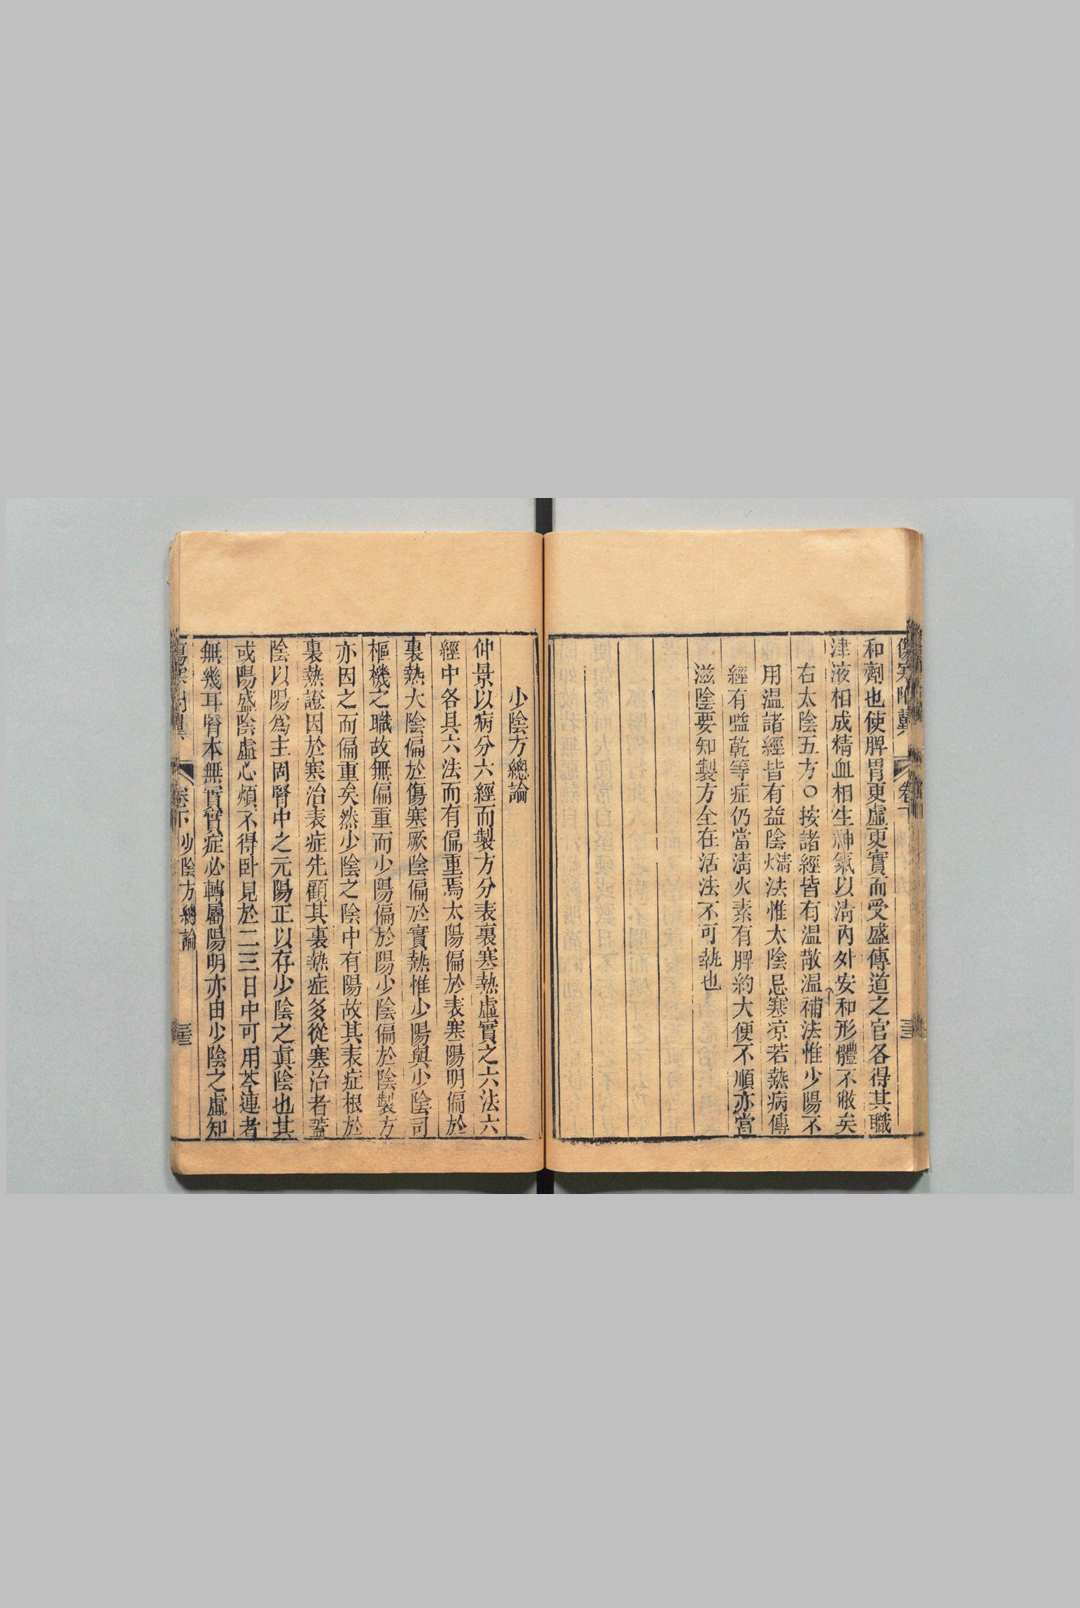 和劑也使脾胃更虛更實而受盛傳道之官各得其職
津液相成精血相生神氣以清內外安和形體不敝矣
右太陰五方〇按諸經皆有温散温補法惟少陽不
用温諸經皆有益陰清法惟太陰忌寒凉若熱病傳
經有嗌乾等症仍當清火素有脾約大便不順亦當
滋陰要知製方全在活法不可執也
少陰方總論
仲景以病分六經而製方分表裏寒熱虛實之六法六
經中各具六法而有偏重焉太陽偏於表寒陽明偏於
裏熱太陰偏於傷寒厥陰偏於實熱惟少陽與少陰司
樞機之職故無偏重而少陽偏於陽少陰偏於陰製方
亦因之而偏重矣然少陰之陰中有陽故其表症根於
裏熱證因於寒治表症先顧其裏熱症多從寒治者蓋
陰以陽為主固腎中之元陽正以存少陰之真陰也其
或陽盛陰虛心煩不得卧見於二三日中可用芩連者
無幾耳腎本無實實症必轉屬陽明亦由少陰之虛知
卷下 少陰方總論